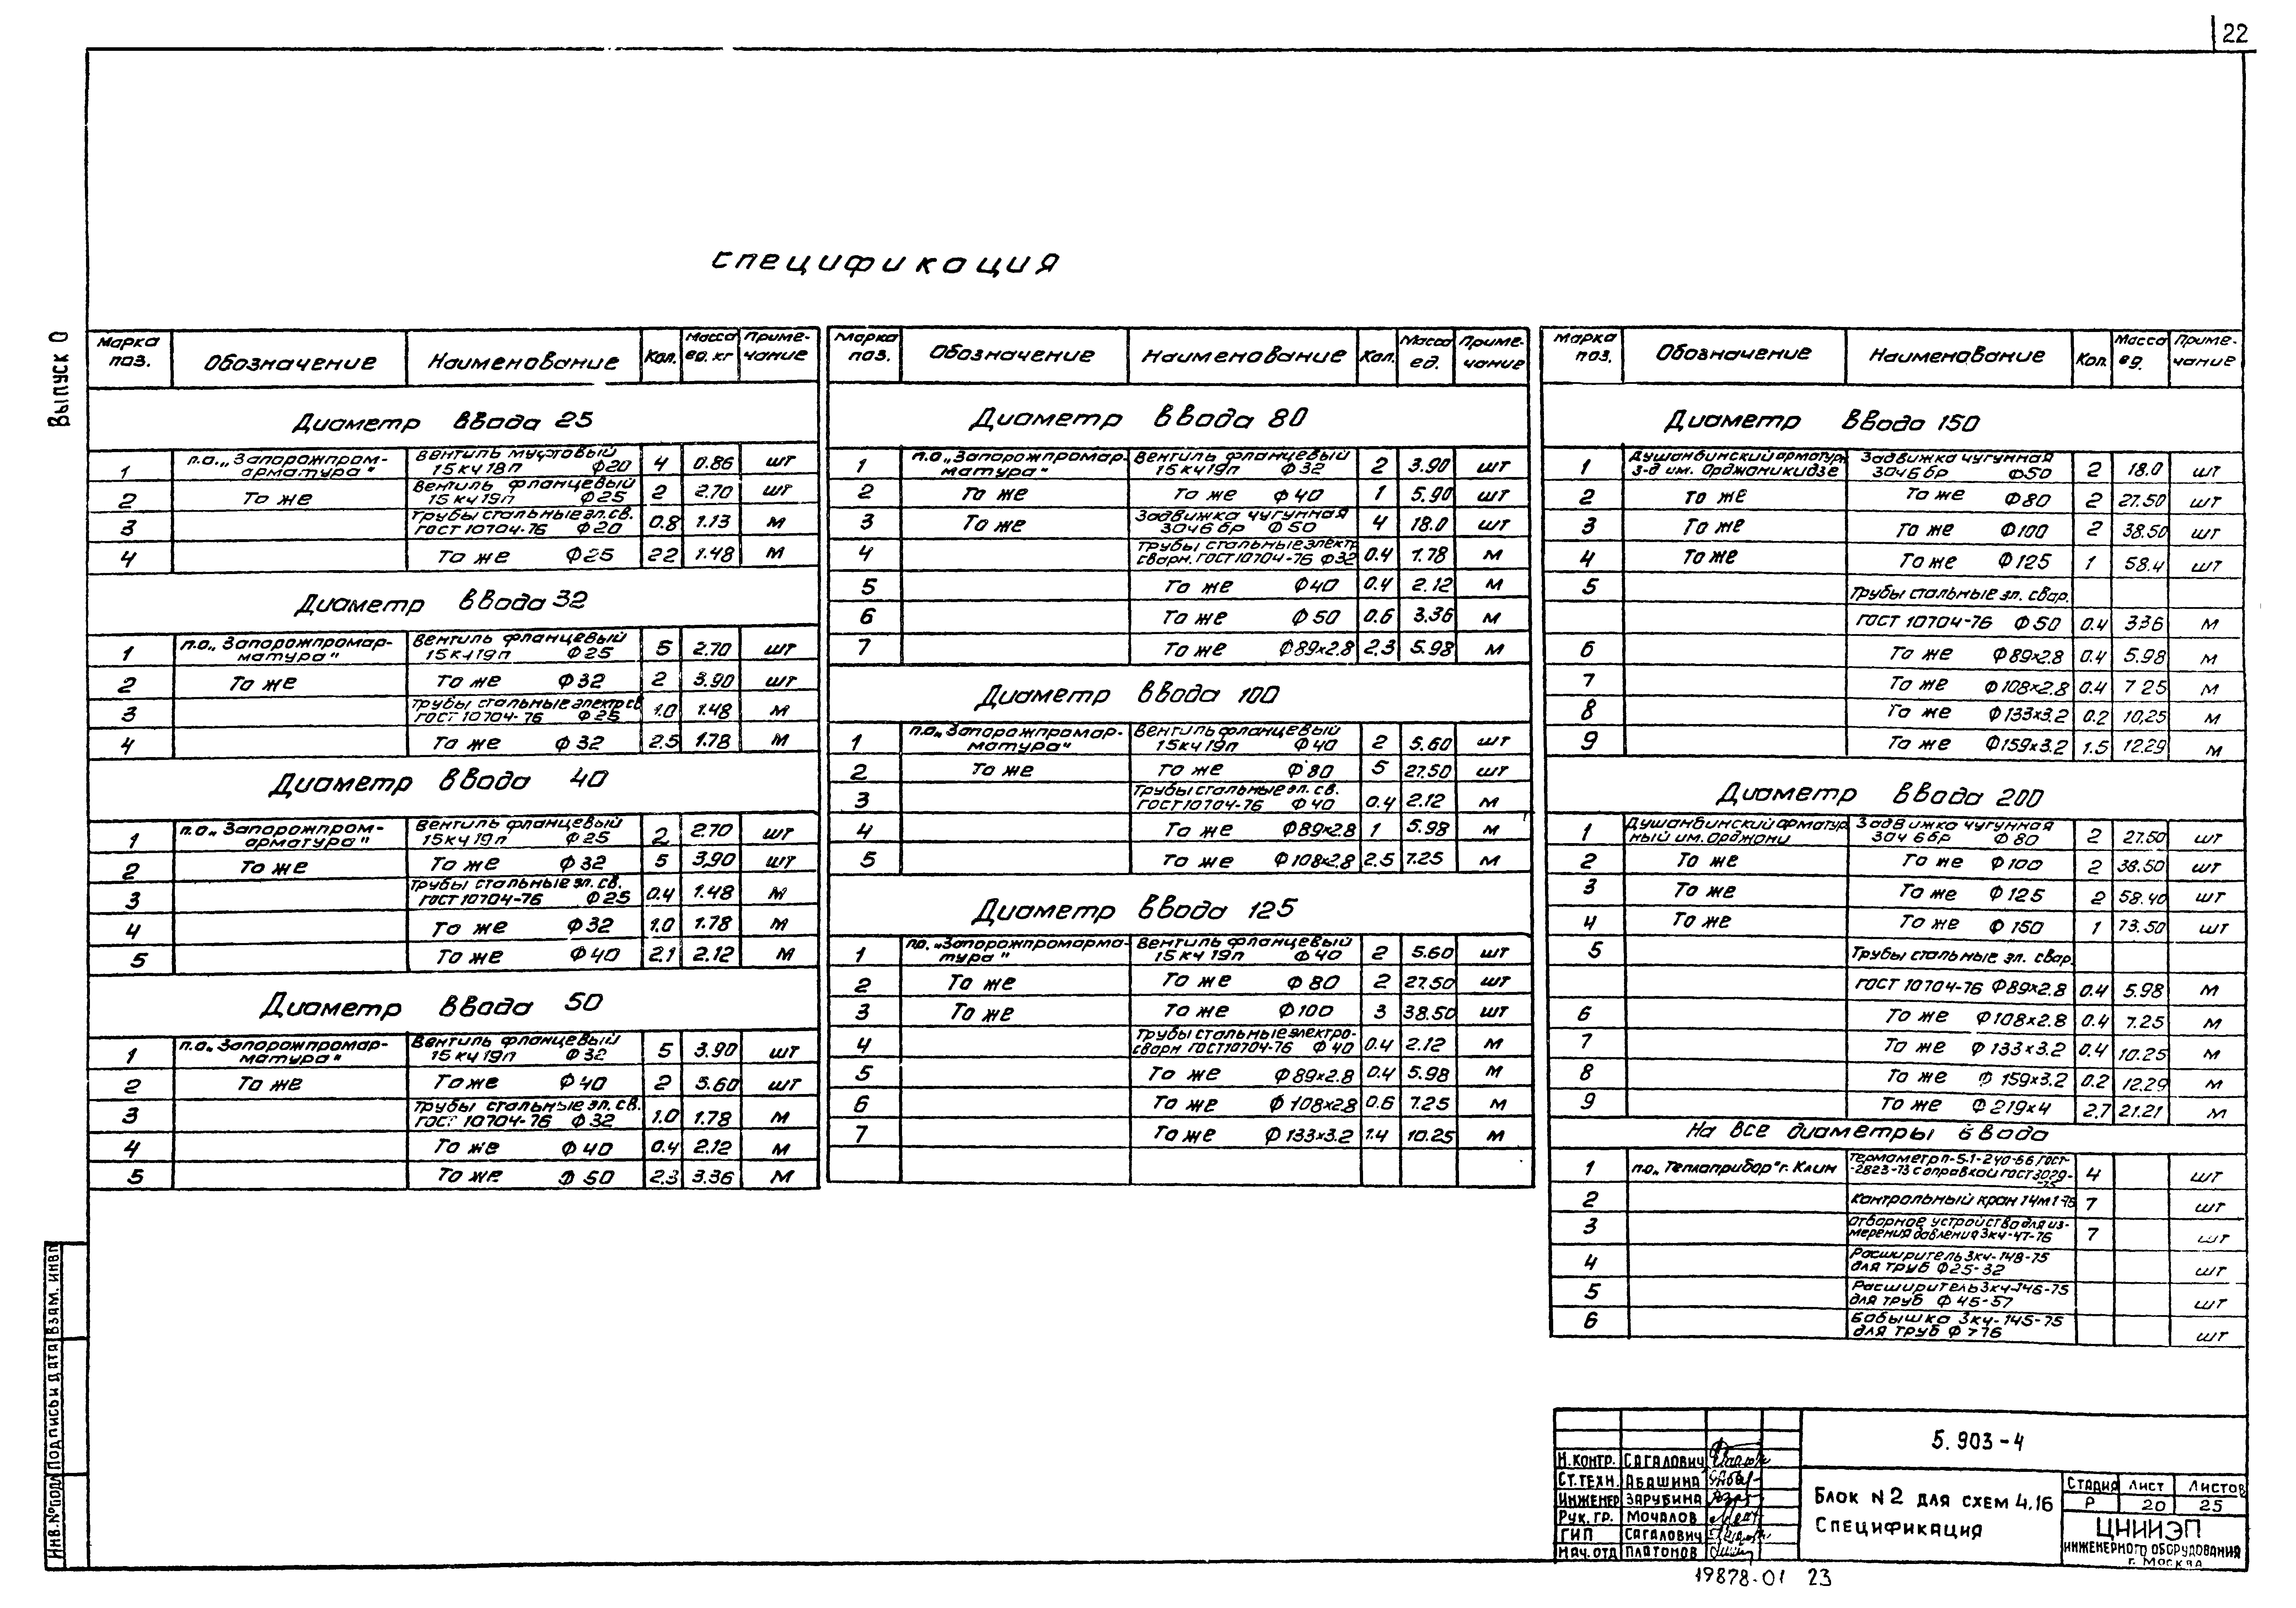 22
Выпуск 0
Спецификация
Марка поз. Обозначение Наименование Кол. Масса ед. кг Примечание
Диаметр ввода 25
1 п.о. „Запорожпром-арматура" Вентиль муфтовый 15кч18п Ф20 4 0.86 шт
2 То же Вентиль фланцевый 15кч19п Ф25 2 2.70 шт
3 Трубы стальные эл.св. ГОСТ 10704-76 Ф20 0.8 1.13 м
4 То же Ф25 22 1.48 м
Диаметр ввода 32
1 п.о. „Запорожпромар-матура" Вентиль фланцевый 15кч19п Ф25 5 2.70 шт
2 То же То же Ф32 2 3.90 шт
3 Трубы стальные электр св ГОСТ 10704-76 Ф25 1.0 1.48 м
4 То же Ф32 2.5 1.78 м
Диаметр ввода 40
1 п.о. „Запорожпром-арматура" Вентиль фланцевый 15кч19п Ф25 2 2.70 шт
2 То же То же Ф32 5 3.90 шт
3 Трубы стальные эл. св. ГОСТ 10704-76 Ф25 0.4 1.48 м
4 То же Ф32 1.0 1.78 м
5 То же Ф40 2.1 2.12 м
Диаметр ввода 50
1 п.о. „Запорожпромар-матура" Вентиль фланцевый 15кч19п Ф32 5 3.90 шт
2 То же То же Ф40 2 5.60 шт
3 Трубы стальные эл. св. ГОСТ 10704-76 Ф32 1.0 1.78 м
4 То же Ф40 0.4 2.12 м
5 То же Ф50 2.3 3.36 м
Марка поз. Обозначение Наименование Кол. Масса ед. Примечание
Диаметр ввода 80
1 п.о. „Запорожпромар-матура" Вентиль фланцевый 15кч19п Ф32 2 3.90 шт
2 То же То же Ф40 1 5.90 шт
3 То же Задвижка чугунная 30ч6бр Ф50 4 18.0 шт
4 Трубы стальные электр сварн. ГОСТ 10704-76 Ф32 0.4 1.78 м
5 То же Ф40 0.4 2.12 м
6 То же Ф50 0.6 3.36 м
7 То же Ф89х2.8 2.3 5.98 м
Диаметр ввода 100
1 п.о. „Запорожпромар-матура" Вентиль фланцевый 15кч19п Ф40 2 5.60 шт
2 То же То же Ф80 5 27.50 шт
3 Трубы стальные эл. св. ГОСТ 10704-76 Ф40 0.4 2.12 м
4 То же Ф89х2.8 1 5.98 м
5 То же Ф108х2.8 2.5 7.25 м
Диаметр ввода 125
1 п.о. „Запорожпромарма-тура" Вентиль фланцевый 15кч19п Ф40 2 5.60 шт
2 То же То же Ф80 2 27.50 шт
3 То же То же Ф100 3 38.50 шт
4 Трубы стальные электро-сварн ГОСТ 10704-76 Ф40 0.4 2.12 м
5 То же Ф89х2.8 0.4 5.98 м
6 То же Ф108х2.8 0.6 7.25 м
7 То же Ф133х3.2 1.4 10.25 м
Марка поз. Обозначение Наименование Кол. Масса ед. Примечание
Диаметр ввода 150
1 Душанбинский арматурн з-д им. Орджоникидзе Задвижка чугунная 30ч6бр Ф50 2 18.0 шт
2 То же То же Ф80 2 27.50 шт
3 То же То же Ф100 2 38.50 шт
4 То же То же Ф125 1 58.4 шт
5 Трубы стальные эл. свар.
ГОСТ 10704-76 Ф50 0.4 3.36 м
6 То же Ф89х2.8 0.4 5.98 м
7 То же Ф108х2.8 0.4 7 25 м
8 То же Ф133х3.2 0.2 10,25 м
9 То же Ф159х3.2 1.5 12.29 м
Диаметр ввода 200
1 Душанбинский арматур ный им. Орджони Задвижка чугунная 30ч 6бр Ф80 2 27.50 шт
2 То же То же Ф100 2 38.50 шт
3 То же То же Ф125 2 58.40 шт
4 То же То же Ф150 1 73.50 шт
5 Трубы стальные эл. свар.
ГОСТ 10704-76 Ф89х2.8 0.4 5.98 м
6 То же Ф108х2.8 0.4 7.25 м
7 То же Ф133х3.2 0.4 10.25 м
8 То же Ф159х3.2 0.2 12.29 м
9 То же Ф219х4 2.7 21.21 м
На все диаметры ввода
1 п.о. „Теплоприбор" г. Клин Термометр П-5-1-240-66 ГОСТ-2823-73 с оправкой ГОСТ 3029-75 4 шт
2 Контрольный кран 14М1-75 7 шт
3 Отборное устройство для из-мерения давления ЗКЧ-47-76 7 шт
4 Расширитель ЗКЧ-148-75 для труб Ф25-32 шт
5 Расширитель ЗКЧ-146-75 для труб Ф 45-57 шт
6 Бобышка ЗКЧ-145-75 для труб Ф 776 шт
Взам. инв№
Подпись и дата
Инв.№подл
5.903-4
Н.контр. Сагалович
Ст.техн. Абашина
Инженер Зарубина
Рук.гр. Мочалов
ГИП Сагалович
Нач.отд Платонов
Блок №2 для схем 4,16
Спецификация
Стадия Лист Листов
Р 20 25
ЦНИИЭП
инженерного оборудования
г. Москва
19878-01 23